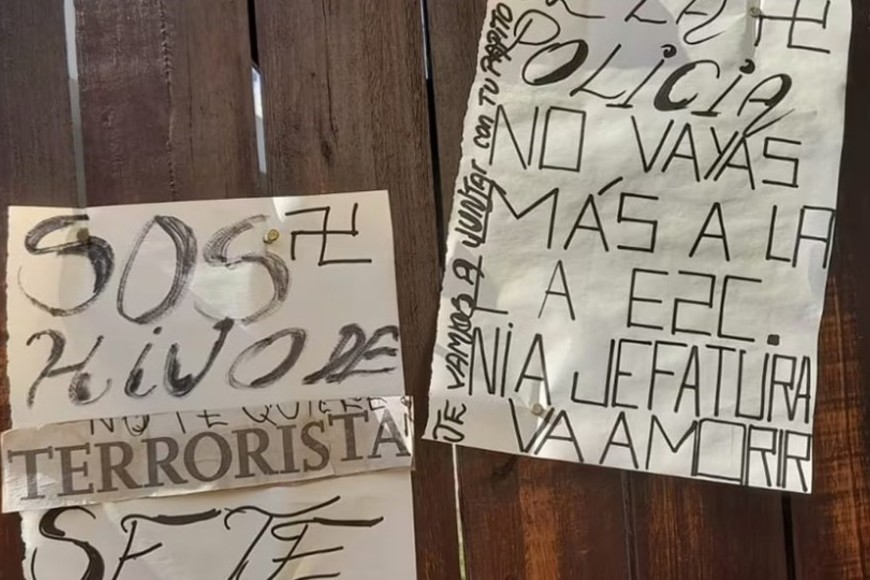 SOS
HIJO DE
NO TE QUIERE
TERRORISTA
SE TE
LA
POLICÍA
NO VAYAS
MÁS A LA
LA ESC.
NIA JEFATURA
VA A MORIR
TE VAMOS A JUNTAR con TU PAPITO